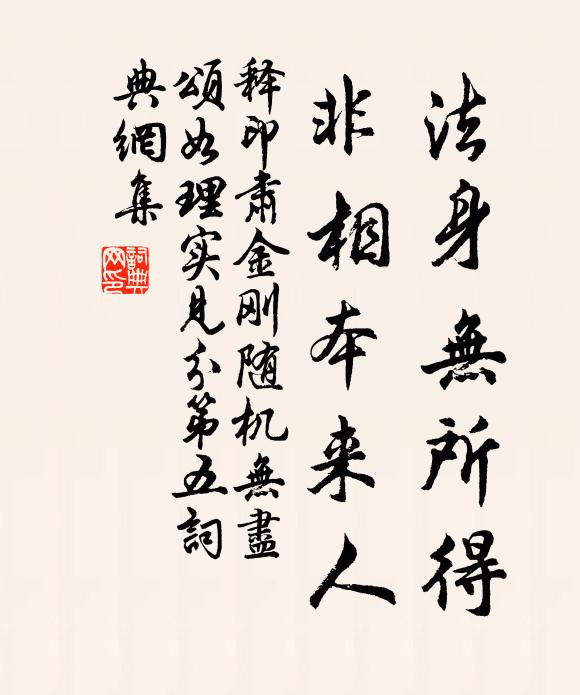 法身無所得
非相本来人
释印肃金刚随机無盡
頌如理实見分第五詞
典網集
詞典
网印